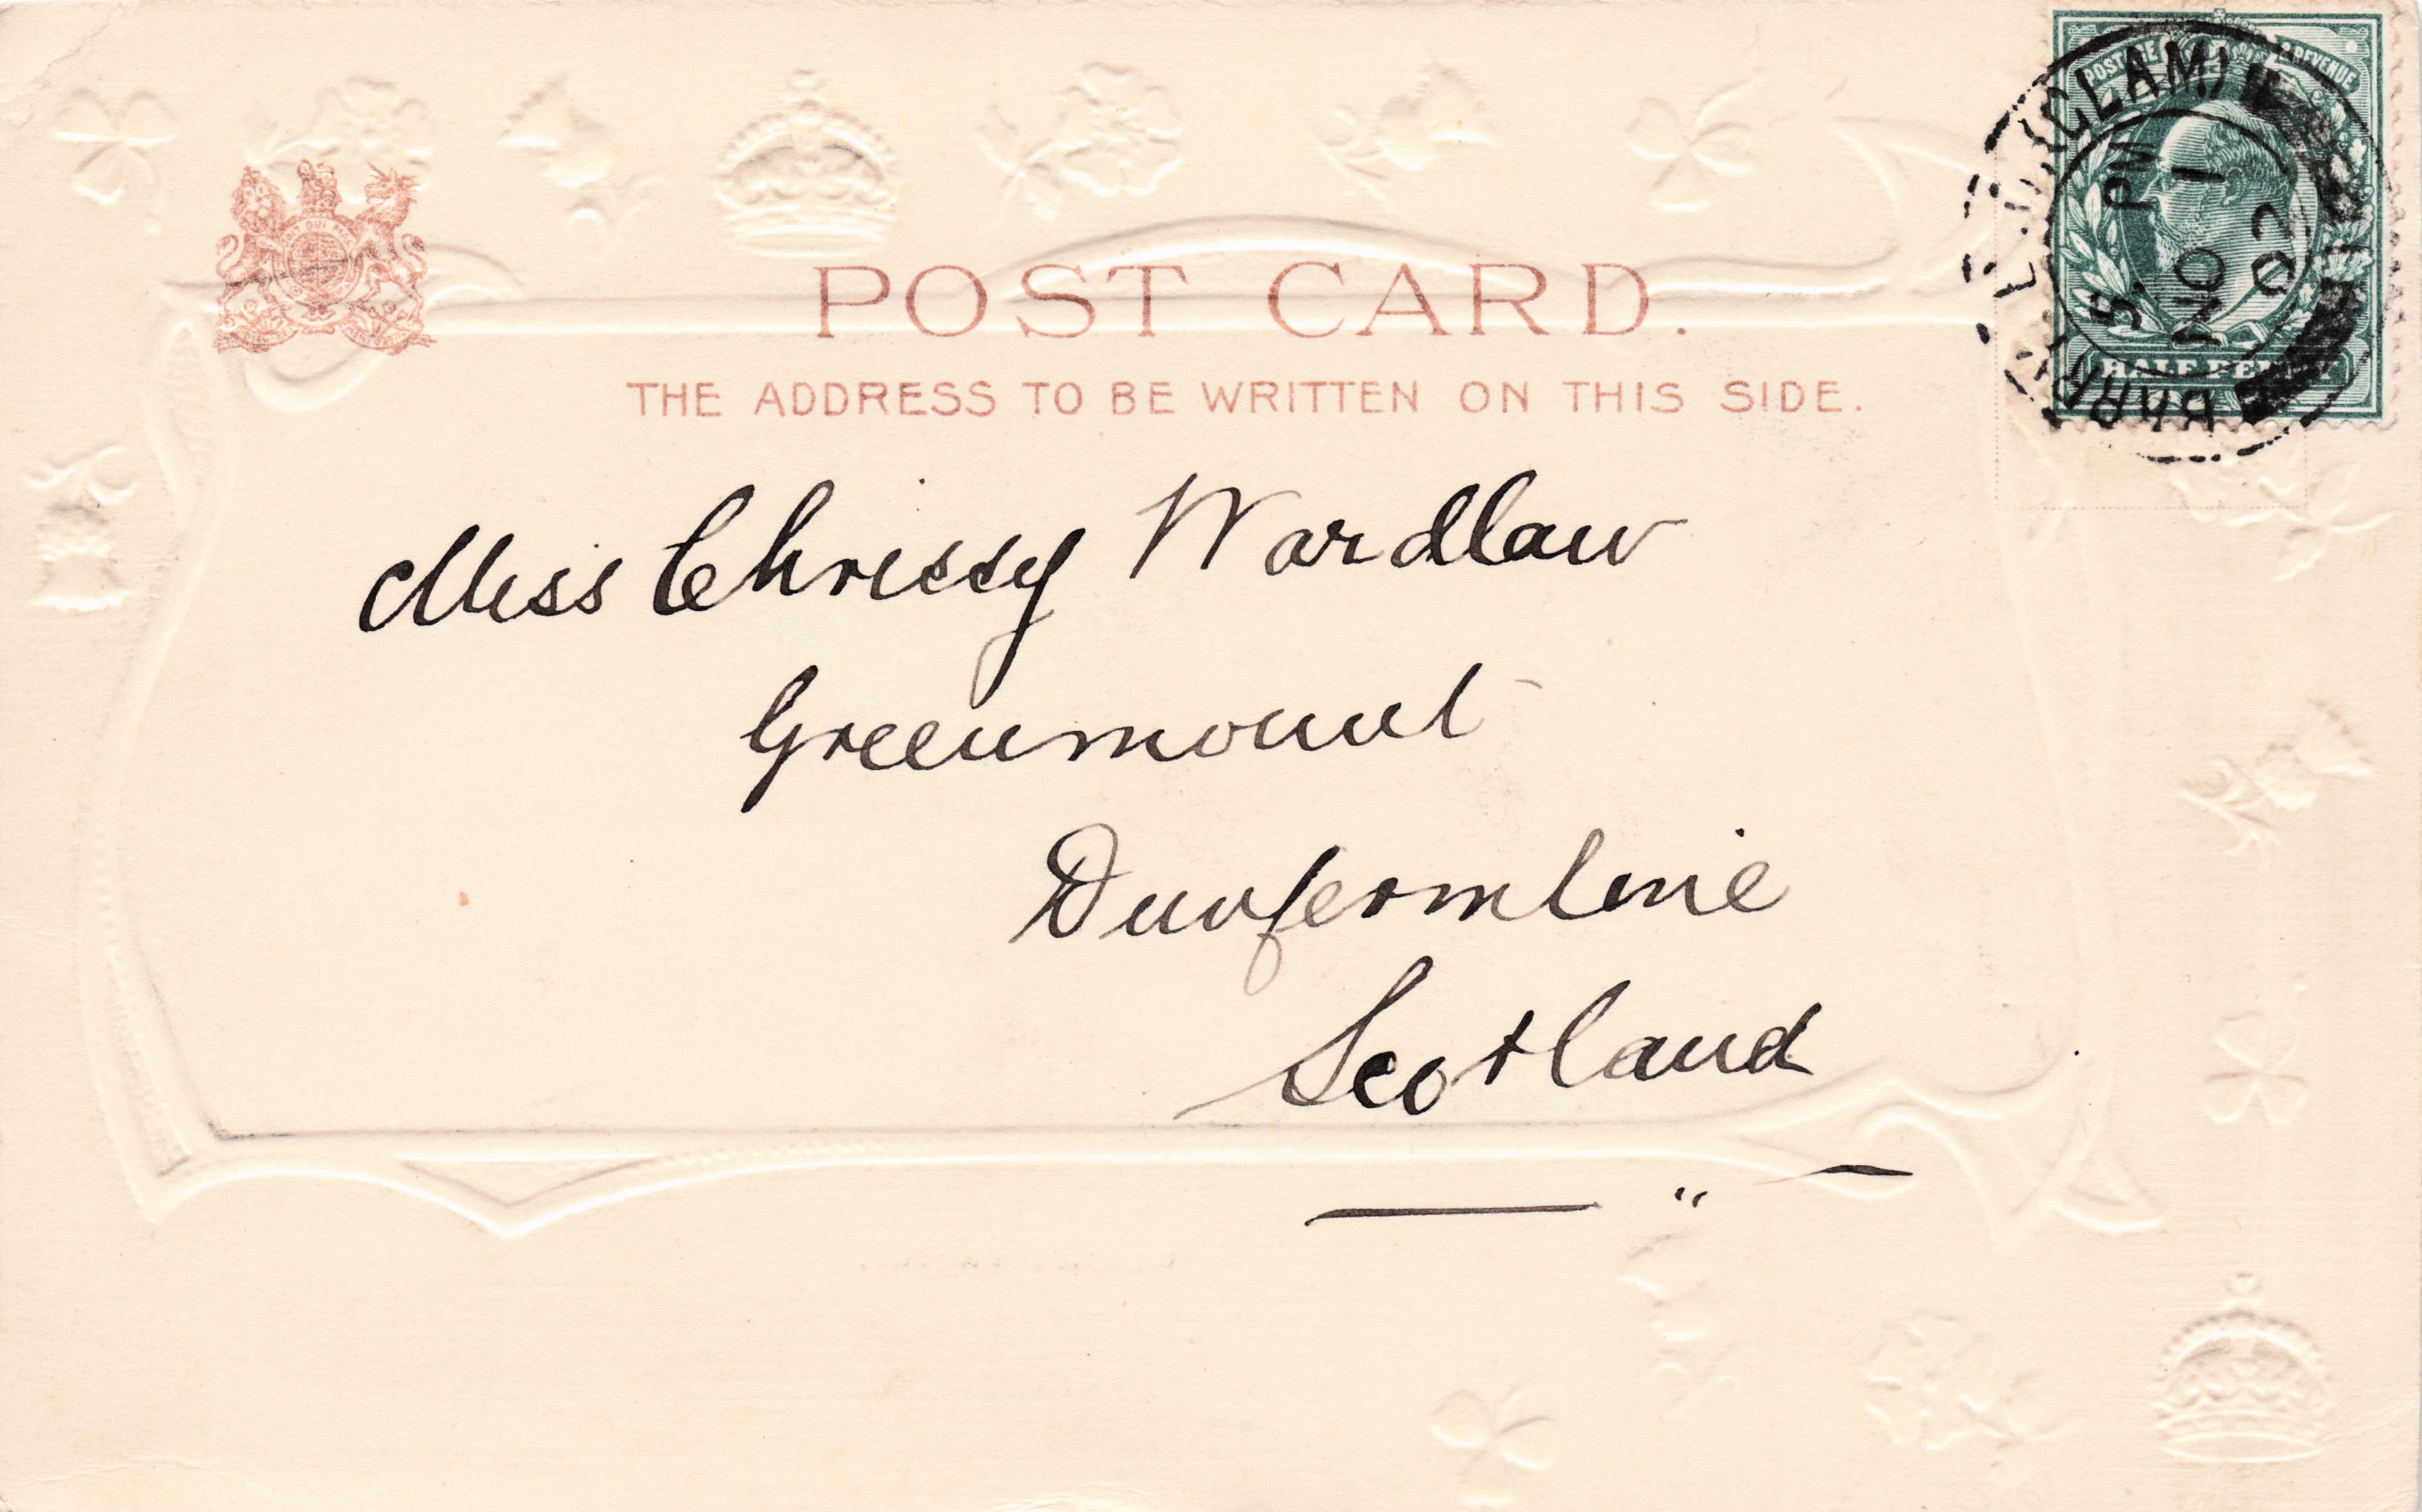 POST CARD.
THE ADDRESS TO BE WRITTEN ON THIS SIDE.
Miss Chrissy Wardlaw
Greenmount
Dunfermline
Scotland
POSTAGE & REVENUE
HALF PENNY
(GLAM)
BARRY
5. PM
NO 1
02